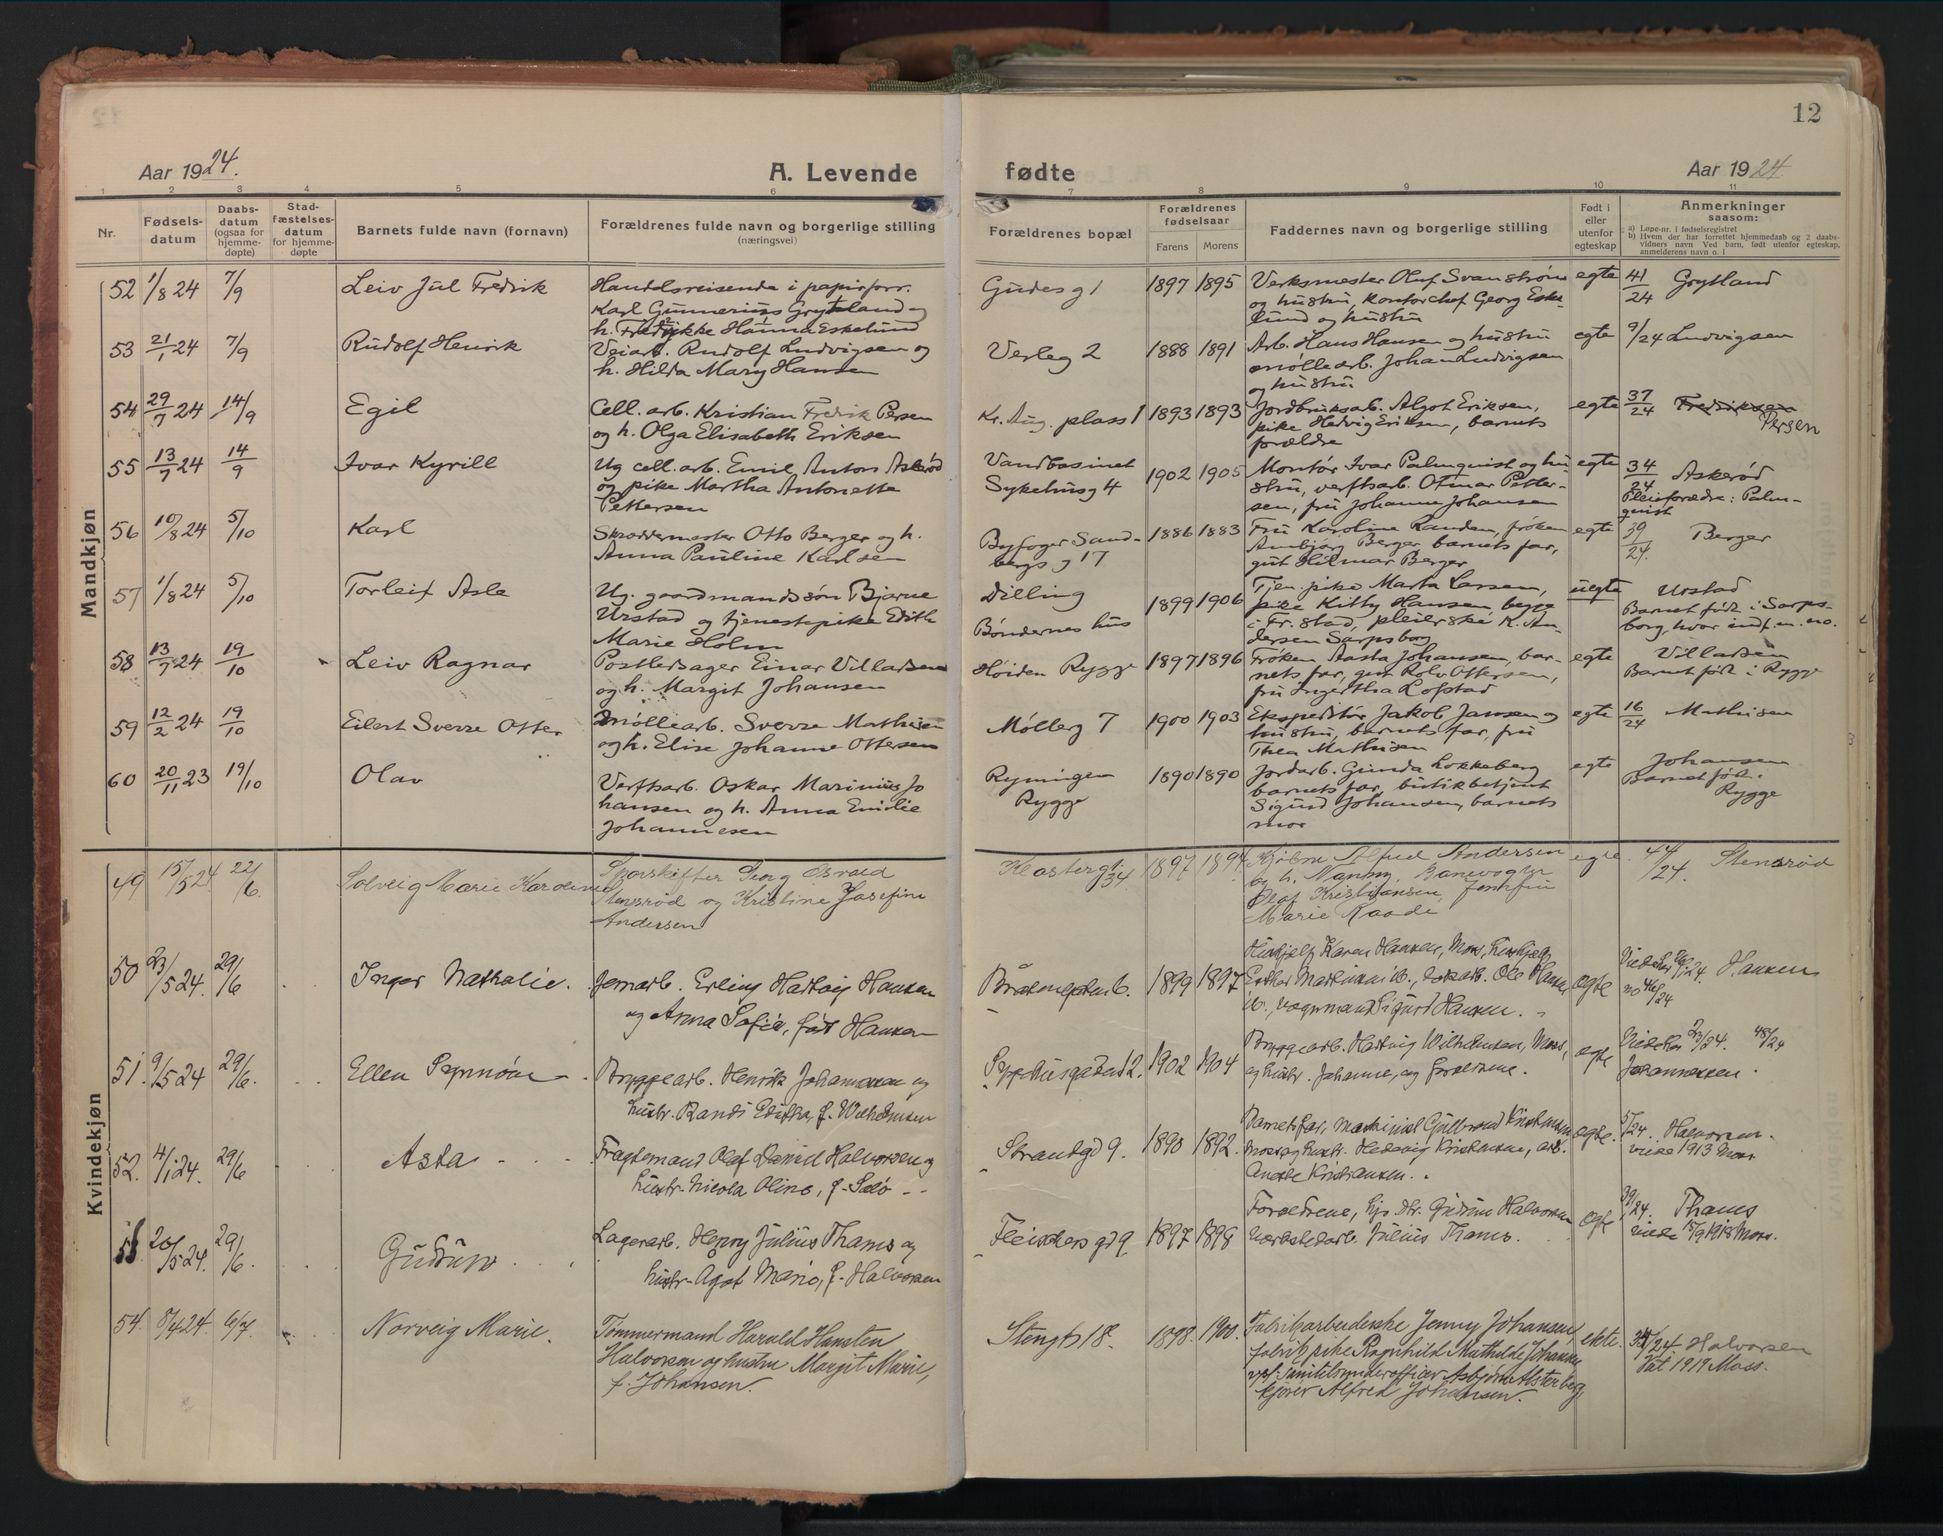 12
Aar 1924.
A. Levende
fødte
Aar 1924.
1 2 3 4 5 6 7 8 9 10 11
Nr.
Fødsels-
datum
Daabs-
datum
(ogsaa for
hjemme-
døpte)
Stad-
fæstelses-
datum
for hjemme-
døpte
Barnets fulde navn (fornavn)
Forældrenes fulde navn og borgerlige stilling
(næringsvei)
Forældrenes bopæl
Forældrenes
fødselsaar
Farens Morens
Faddernes navn og borgerlige stilling
Født i
eller
utenfor
egteskap
Anmerkninger
saasom:
a) Løpe-nr. i fødselsregistret
b) Hvem der har forrettet hjemmedaab og 2 daabs-
vidners navn Ved barn, født utenfor egteskap,
anmelderens navn o. l
Mandkjøn
52 1/8 24 7/9 Leiv Jul Fredrik
Handelsreisende i papirforr.
Karl Gunnerius Grytland og
h. Fredrikke Hanna Eskelund
Gudesg 1 1897 1895
Verksmester Oluf Svanstrøm
og hustru, kontorchef Georg Eske-
lund og hustru
egte 41/24 Grytland
53 21/1 24 7/9 Rudolf Henrik
Veiarb. Rudolf Ludvigsen og
h. Hilda Mary Hansen
Verleg 2 1888 1891
Arb. Hans Hansen og hustru
møllearb. Johan Ludvigsen
og hustru
egte 9/24 Ludvigsen
54 29/7 24 14/9 Egil
Cell. arb. Kristian Fredrik Persen
og h. Olga Elisabeth Eriksen
Kr. Aug. plass 1 1893 1893
Jordbruksarb. Algot Eriksen,
pike Hedvig Eriksen, barnets
forældre
egte 37/24 Fredriksen
Persen
55 13/7 24 14/9 Ivar Kyrill
Ug cell. arb. Emil Anton Askerød
og pike Martha Antonette
Pettersen
Vandbasinet
Sykehusg 4 1902 1905
Montør Ivar Palmquist og hu
stru, verftsarb. Otmar Petter-
sen, fru Johanne Johansen
egte 34/24 Askerød
Pleieforældre: Palm-
quist
56 10/8 24 5/10 Karl
Skræddermester Otto Berger og h.
Anna Pauline Karlsen
Byfoger Sand-
bergs g 17 1886 1883
Fru Karoline Randem, frøken
Annbjørg Berger barnets far,
gut Hilmar Berger
egte 39/24. Berger
57 1/8 24 5/10 Torleif Asle
Ug. gaardmandssøn Bjarne
Urstad og tjenestepike Edith
Marie Holm
Dilling
Bøndernes hus 1899 1906
Tjen. pike Marta Larsen,
pike Kitty Hansen, begge
i Fr. stad, pleierske K. An-
dersen Sarpsborg
uegte Urstad
Barnet født i Sarps-
borg, hvor indf. u. no.
58 13/7 24 19/10 Leiv Ragnar
Postledsager Einar Villadsen
og h. Margit Johansen
Høiden Rygge 1897 1896
Frøken Aasta Johansen, bar-
nets far, gut Rolv Ottersen,
fru Ingertha Lofstad
egte Villadsen
Barnet født i Rygge
59 12/2 24 19/10 Eilert Sverre Otter
Møllearb. Sverre Mathisen
og h. Elise Johanne Ottersen
Møllerg 7 1900 1903
Ekspeditør Jakob Jansen og
hustru, barnets far, fru
Thea Mathisen
egte 16/24 Mathisen
60 20/11 23 19/10 Olav
Verftsarb. Oskar Marinius Jo
hansen og h. Anna Emilie
Johannesen
Ryningen
Rygge 1890 1890
Jordarb. Gunda Løkkeberg
barnets far, butikbetjent
Sigurd Johansen, barnets
mor
egte Johansen
Barnet født i
Rygge
Kvindekjøn
49 15/5 24 22/6 Solveig Marie Karoline
Sporskifter Georg Osvald
Stensrød og Kristine Josefine
Andersen
Klosterg 34 1897 1894
Kjøbm. Alfred Andersen
og h. Nanny, Banevogter
Olaf Kristiansen, jomfru
Marie Raade
egte. 44/24. Stensrød
50 23/5 24. 29/6 Inger Nathalie.
Jernarb. Erling Hartvig Hansen
og Anna Sofie, født Hansen
1899 1897
Hushjelp Karen Hansen, Moss, hushjelp
Hansen
ib., vognmand Sigurd Hansen.
egte no 46/24 Hansen
51. 9/5 24 29/6. Ellen Synnøve
Bryggearb. Henrik Johannessen og
hustr. Randi Editha, f. Wilhelmsen
Sygehusgaden 12. 1902 1904
Bryggearb. Hartvig Wilhelmsen, Moss,
og hustr. Johanne, og forældrene.
egte 48/24
Johannessen.
52. 4/1 24. 29/6 Asta
Fragtemand Olaf Daniel Halvorsen og
hustr. Nicola Oline, f. Salø
Strandgd 9. 1890 1892.
Barnets far, Maskinist Gulbrand Kristiansen
Moss og hustr. Hedevig Kristiansen, arb.
Anette Kristiansen.
egte. 5/24. Halvorsen.
viede 1913 Moss
20/5 24. 29/6. Gudrun
Lagerarb. Henry Julius Thams og
hustr. Agot Marie, f. Halvorsen
Fleischers gd 9. 1897 1898
Forældrene, Gudrun Halvorsen
Julius Thams.
egte 39/24. Thams
viede 15/9 1918 Moss.
54. 8/4 24. 6/7. Norveig Marie.
Tømmermand Harald Hansten
Halvorsen og hustru Margit Marie,
f. Johansen.
Stengt 18. 1898. 1900.
Fabrikarbeiderske Jenny Johansen
fabrikpike Ragnhild Mathilde Johansen
Asbjørn Alsterberg
kjører Alfred Johansen.
ekte. /24 Halvorsen
Vat. 1919 Moss.